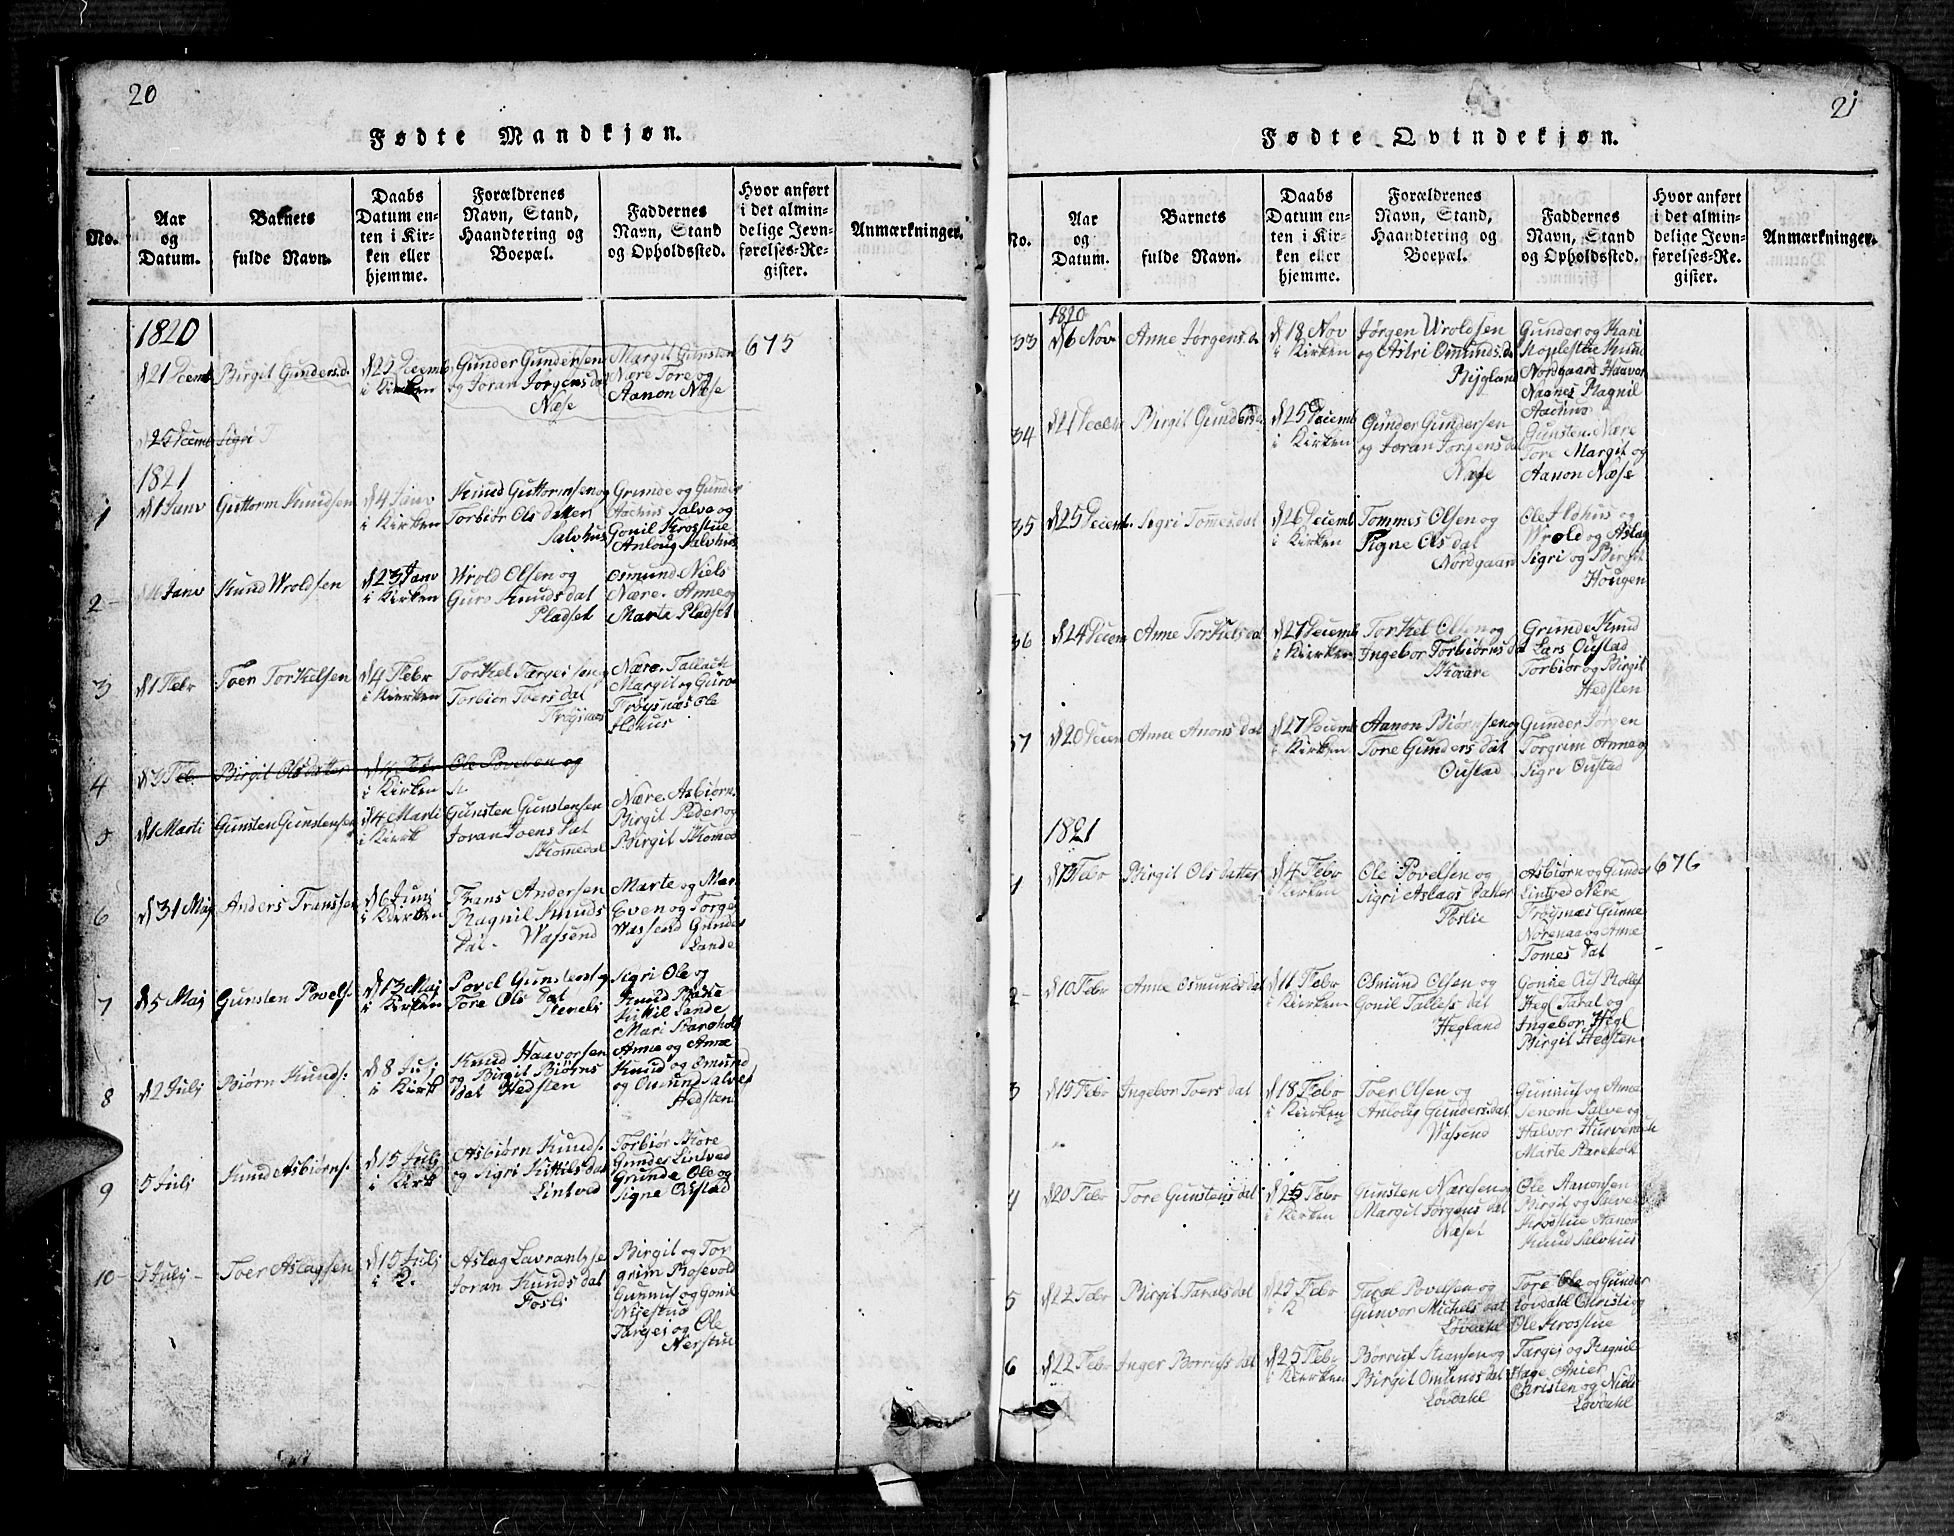 20
Fødte Mandkjøn.
No.
Aar
og
Datum.
Barnets
fulde Navn.
Daabs
Datum en-
ten i Kir-
ken eller
hjemme.
Forældrenes
Navn, Stand,
Haandtering og
Boepæl.
Faddernes
Navn, Stand
og Opholdssted.
Hvor anført
i det almin-
delige Jevn-
førelses-Re-
gister.
Anmærkninger.
1820
d 21 Decemb
Birgit Gundersd.
d 25 Decemb
i Kirken
Gunder Gundersen
og Joran Jørgens dat
Næse
Margit Gunsten
Nære Tore og
Aanon Næse
675
d 25 Decemb Sigri T
1821
1
d 1 Janv
Guttorm Knudsen
d 4 Janv
i Kirken
Knud Guttormsen og
Torbiør Ols datter
Salvhus
Grunde og Gunder
Aachus Salve og
Gonil Krosstue
Anloug Salvhus
2
Janv
Knud Wroldsen
d 23 Janv
i Kirken
Wrold Olsen og
Guro Knuds dat
Pladset
Osmund Niels
Nære. Anne og
Marte Pladset
3
d 1 Febr
Toer Torkelsen
d 4 Febr
i Kirken
Torkel Targeisen og
Torbiør Toers dat
Frøysnæs
Nære. Tallack
Margit og Guro
Frøysnæs Ole
Aldhus
4
d 3 Feb.
Birgit Olsdatter
d 4 Febr
i Kirken
Ole Povelsen og
5
d 1 Marti
Gunsten Gunstensen
d 4 Marti
i Kirk
Gunsten Gunstensen
Joran Toens dat
Skomedal
Nære. Asbiørn.
Birgit Peder og
Birgit Skomed
6
d 31 Maj
Anders Franssen
d 6 Junj
i Kirken
Frans Andersen
Ragnil Knuds
dat. Wassend
Marte og Mar.
Even og Torge
Wassend Gunder
Lande
7
d 5 Maj
Gunsten Povels:
d 13 Maj
i Kirken
Povel Gunstens og
Tore Ols dat
Heneli
Sigri Ole og
Knud
Kittil Sande
Mari Stareholt
8
d 2 Julj
Biørn Kunds:
d 8 Julj
i Kirk
Knud Haavorsen
og Birgit Biørns
dat Hedsten
Anne og Anne
Knud og Osmund
og Osmund Salves
Hedsten
9
5 Julj
Knud Asbiørns:
d 15 Julj
i Kirk
Asbiørn Kunds:
og Sigri Kittils dat
Lintved
Torbiør Skore
Gunder Lintved
Grunde Ole og
Signe Oustad
10
5 Julj
Toer Aslagsen
d 15 Julj
i K.
Aslag Lavrantsse
Joran Kunds dat
Fosli
Birgit og Tor
grim Rosevold
Gunnuf og Gonil
Nijestuo
Targej og Ole
Nerstue
21
Fødte Qvindekjøn.
No.
Aar
og
Datum.
Barnets
fulde Navn.
Daabs
Datum en-
ten i Kir-
ken eller
hjemme.
Forældrenes
Navn, Stand,
Haandtering og
Boepæl.
Faddernes
Navn, Stand
og Opholdssted.
Hvor anført
i det almin-
delige Jevn-
førelses-Re-
gister.
Anmærkninger.
1820
33
d 6 Nov
Anne Jørgens.d.
d 18 Nov
i Kirken
Jørgen Wroldsen
og Astri Omunds.d
Bygland
Gunder og Kari
Nordgaard Haavor
Naanes Ragnil
Aachus
34
d 21 Decem
Birgit Gunders.
d 25 Decemb
i Kirken
Gunder Gundersen
og Joran Jørgens dat
Næse
Gunsten. Nære
Tore Margit og
Aanon Næse
35
d 25 Decemb.
Sigri Tommes.dat
d 26 Decemb
i Kirken
Tommes Olsen og
Signe Ols dat
Nordgaard
Ole Aldhus og
Wrold og Aslag
Sigri og Birgit
Hougen
36
d 24 Decem
Anne Torkels dat
d 27 Decemb
i Kirken
Torkel Olsen og
Ingebor Torbiørns dat
Skaare
Grunde Knud
Lars Oustad
Torbiør og Birgit
Hedsten
37
d 20 Decem
Anne Anons dat
d 27 Decemb
i Kirken
Aanon Biørnsen og
Tore Gunders dat
Oustad
Gunder Jørgen
Torgrim Anne og
Sigri Oustad
1821
1
Febr
Birgit Olsdatter
d 4 Febr
i Kirken
Ole Povelsen og
Sigri Aslags datter
Foslie
Asbiørn og Gunder
Lintved Nere
Frøysnæs Gunne
Norenaa og Anne
Tomes dat
676
2
d 10 Febr
Anne Osmunds dat
d 11 Febr
i Kirken
Osmund Olsen og
Gonil Talless dat
Hegland
Gonne Aus Rolef
Hegl Taral og
Ingebor Hegl
Birgit Hedsten
3
d 15 Febr
Ingebor Toers dat
d 18 Febr
i Kirken
Toer Olsen og
Anloug Gunders.dat
Wassend
Gunnuf og Anne
Jenom Salve og
Halvor Hurverack
Marte Stareholt
4
d 20 Febr
Tore Gunstens dat
d 25 Febr
i Kirken
Gunsten Næresen og
Margit Jørgens dat
Næset
Ole Aanonsen
Birgit og Salve
Krosstue Aanon
Knud Salvhus
5
d 22 Febr
Birgit Tarals dat
d 25 Febr
i K
Taral Povelsen og
Gunvor Michels dat
Løvdahl
Tore Ole og Gunder
Løvdahl Christi og
Ole Krosstue
6
d 22 Febr
Inger Børrufs dat
d 25 Febr
i Kirken
Børruf Stiansen og
Birgit Omunds dat
Løvdahl
Targej og Ragnil
Hage Anier
Christen og Niels
Løvdahl